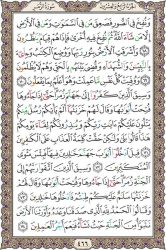 الجزء الرابع والعشرون سورة الزمر
وَنُفِخَ فِي ٱلصُّورِ فَصَعِقَ مَن فِي ٱلسَّمَٰوَٰتِ وَمَن فِي ٱلْأَرْضِ
إِلَّا مَن شَآءَ ٱللَّهُ ثُمَّ نُفِخَ فِيهِ أُخْرَىٰ فَإِذَا هُمْ قِيَامٌ يَنظُرُونَ
٦٨ وَأَشْرَقَتِ ٱلْأَرْضُ بِنُورِ رَبِّهَا وَوُضِعَ ٱلْكِتَٰبُ وَجِا۟ىٓءَ
بِٱلنَّبِيِّـۧنَ وَٱلشُّهَدَآءِ وَقُضِيَ بَيْنَهُم بِٱلْحَقِّ وَهُمْ لَا يُظْلَمُونَ
٦٩ وَوُفِّيَتْ كُلُّ نَفْسٍ مَّا عَمِلَتْ وَهُوَ أَعْلَمُ بِمَا يَفْعَلُونَ
٧٠ وَسِيقَ ٱلَّذِينَ كَفَرُوٓا۟ إِلَىٰ جَهَنَّمَ زُمَرًا حَتَّىٰٓ إِذَا جَآءُوهَا
فُتِحَتْ أَبْوَٰبُهَا وَقَالَ لَهُمْ خَزَنَتُهَآ أَلَمْ يَأْتِكُمْ رُسُلٌ مِّنكُمْ
يَتْلُونَ عَلَيْكُمْ ءَايَٰتِ رَبِّكُمْ وَيُنذِرُونَكُمْ لِقَآءَ يَوْمِكُمْ
هَٰذَا قَالُوا۟ بَلَىٰ وَلَٰكِنْ حَقَّتْ كَلِمَةُ ٱلْعَذَابِ عَلَى ٱلْكَٰفِرِينَ
٧١ قِيلَ ٱدْخُلُوٓا۟ أَبْوَٰبَ جَهَنَّمَ خَٰلِدِينَ فِيهَا فَبِئْسَ مَثْوَى
ٱلْمُتَكَبِّرِينَ ٧٢ وَسِيقَ ٱلَّذِينَ ٱتَّقَوْا۟ رَبَّهُمْ إِلَى ٱلْجَنَّةِ زُمَرًا
حَتَّىٰٓ إِذَا جَآءُوهَا وَفُتِحَتْ أَبْوَٰبُهَا وَقَالَ لَهُمْ خَزَنَتُهَا
سَلَٰمٌ عَلَيْكُمْ طِبْتُمْ فَٱدْخُلُوهَا خَٰلِدِينَ ٧٣
وَقَالُوا۟ ٱلْحَمْدُ لِلَّهِ ٱلَّذِي صَدَقَنَا وَعْدَهُۥ وَأَوْرَثَنَا ٱلْأَرْضَ
نَتَبَوَّأُ مِنَ ٱلْجَنَّةِ حَيْثُ نَشَآءُ فَنِعْمَ أَجْرُ ٱلْعَٰمِلِينَ ٧٤
٤٦٦